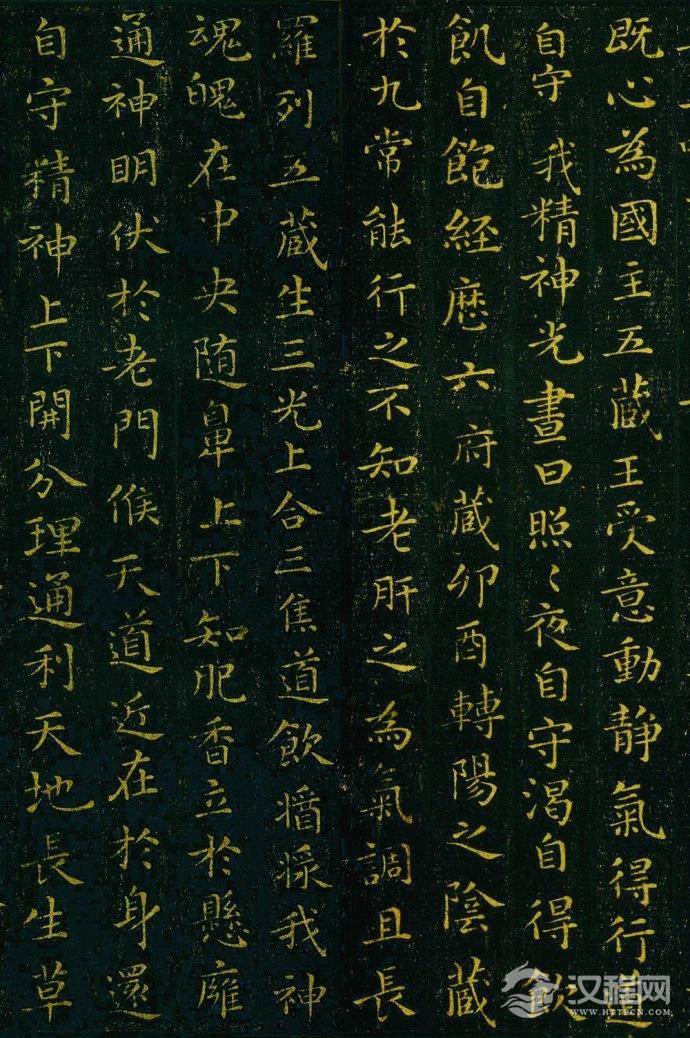 既心為國主五藏王受意動靜氣得行道
自守我精神光晝日照〻夜自守渴自得飲
飢自飽經歷六府藏卯酉轉陽之陰藏
於九常能行之不知老肝之為氣調且長
羅列五藏生三光上合三焦道飲漿我神
魂魄在中央随鼻上下知肥香立於懸廱
通神明伏於老門候天道近在於身還
自守精神上下開分理通利天地長生草
汉程网
WWW.HTTPCN.COM